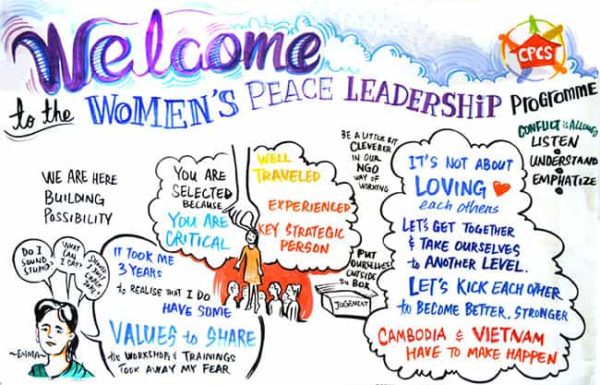 Welcome
CPCS
to the WOMEN'S PEACE LEADERSHIP PROGRAMME
CONFLICT is ALLOWED
LISTEN
UNDERSTAND
EMPHATIZE
WE ARE HERE
BUILDING
POSSIBILITY
YOU ARE
SELECTED
BECAUSE
YOU ARE
CRITICAL
WELL
TRAVELED
EXPERIENCED
KEY STRATEGIC
PERSON
BE A LITTLE BIT
CLEVERER
IN OUR
NGO
WAY OF
WORKING
PUT
OURSELVES
OUTSIDE
THE BOX
JUGEMENT
IT'S NOT ABOUT
LOVING
each others
LET'S GET TOGETHER
& TAKE OURSELVES
to ANOTHER LEVEL.
LET'S KICK EACH OTHER
to BECOME BETTER, STRONGER
CAMBODIA & VIETNAM
HAVE TO MAKE HAPPEN
DO I
SOUND
STUPID?
WHAT
CAN I
SAY?
SHOULD
I JUST
IT TOOK ME
3 YEARS
to REALISE THAT I DO
HAVE SOME
VALUES to SHARE
the WORKSHOPS & TRAININGS
TOOK AWAY MY FEAR